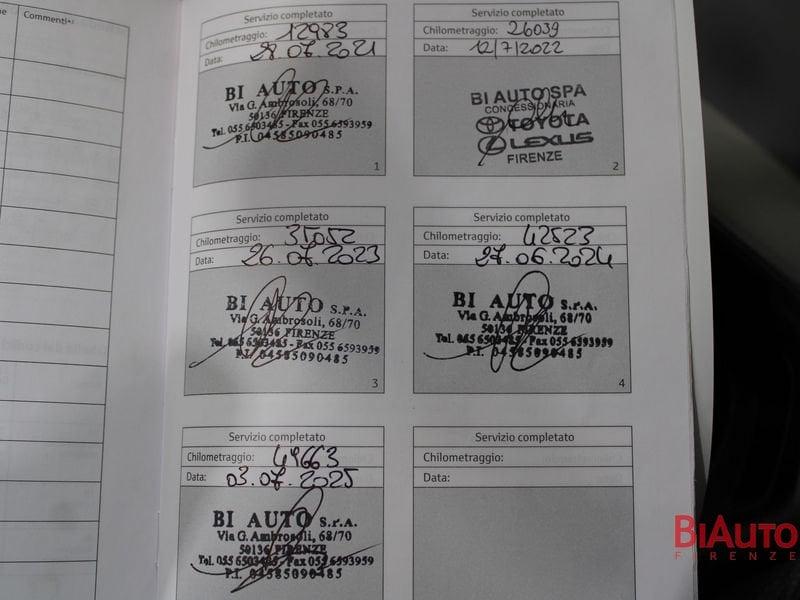 Commenti*²
Servizio completato
Chilometraggio: 12983
Data: 28.07.2021
BI AUTO S.P.A.
Via G. Ambrosoli, 68/70
50136 FIRENZE
Tel. 055 6503485 - Fax 055 6593959
P.I. 04585090485
1
Servizio completato
Chilometraggio: 26039
Data: 12/7/2022
BI AUTO SPA
CONCESSIONARIA
TOYOTA
LEXUS
FIRENZE
2
Servizio completato
Chilometraggio: 35052
Data: 26.07.2023
BI AUTO S.P.A.
Via G. Ambrosoli, 68/70
50136 FIRENZE
Tel. 055 6503485 - Fax 055 6593959
P.I. 04585090485
3
Servizio completato
Chilometraggio: 42523
Data: 27.06.2024
BI AUTO S.P.A.
Via G. Ambrosoli, 68/70
50136 FIRENZE
Tel. 055 6503485 - Fax 055 6593959
P.I. 04585090485
4
Servizio completato
Chilometraggio: 49663
Data: 03.07.2025
BI AUTO S.P.A.
Via G. Ambrosoli, 68/70
50136 FIRENZE
Tel. 055 6503485 - Fax 055 6593959
P.I. 04585090485
Servizio completato
Chilometraggio:
Data:
BIAUTO
FIRENZE